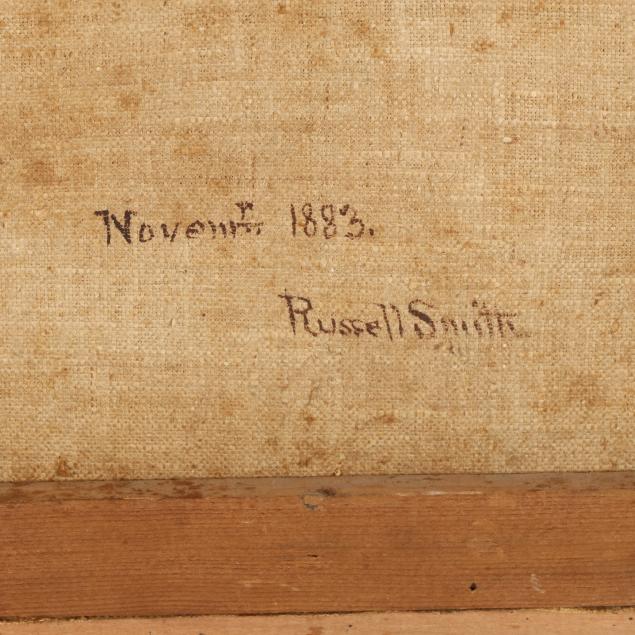 Novemʳ 1883.
Russell Smith